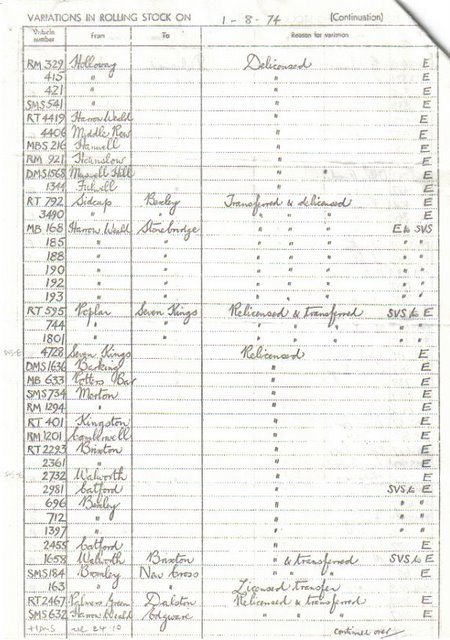 VARIATIONS IN ROLLING STOCK ON 1 - 8 - 74 (Continuation)
Vehicle number From To Reason for variation
RM 329 Holloway Delicensed E
415 " " E
421 " " E
SMS 541 " " E
RT 4419 Harrow Weald " E
4406 Middle Row " E
MBS 216 Hanwell " E
RM 921 Hounslow " E
DMS 1568 Muswell Hill " " E
1344 Fulwell " E
RT 792 Sidcup Bexley Transferred & delicensed E
3490 " " " " " E
MB 168 Harrow Weald Stonebridge " " " E to SVS
185 " " " " " " "
188 " " " " " " "
190 " " " " " " "
192 " " " " " " "
193 " " " " " " "
RT 595 Poplar Seven Kings Relicensed & transferred SVS to E
744 " " " " " " "
1801 " " " " " " "
4728 Seven Kings Relicensed E
DMS 1636 Barking " E
MB 633 Potters Bar " E
SMS 734 Merton " E
RM 1294 " " E
RT 401 Kingston " E
RM 1201 Camberwell " E
RT 2293 Brixton " E
2361 " " E
2732 Walworth " E
2981 Catford " SVS to E
696 Bexley " " "
712 " " " "
1397 " " " "
2455 Catford " E
1658 Walworth Brixton " & transferred SVS to E
SMS 184 Bromley New Cross " " " E
163 " Licensed transfer E
RT 2467 Palmers Green Dalston Relicensed & transferred E
SMS 632 Harrow Weald Edgware " " " E
continued over